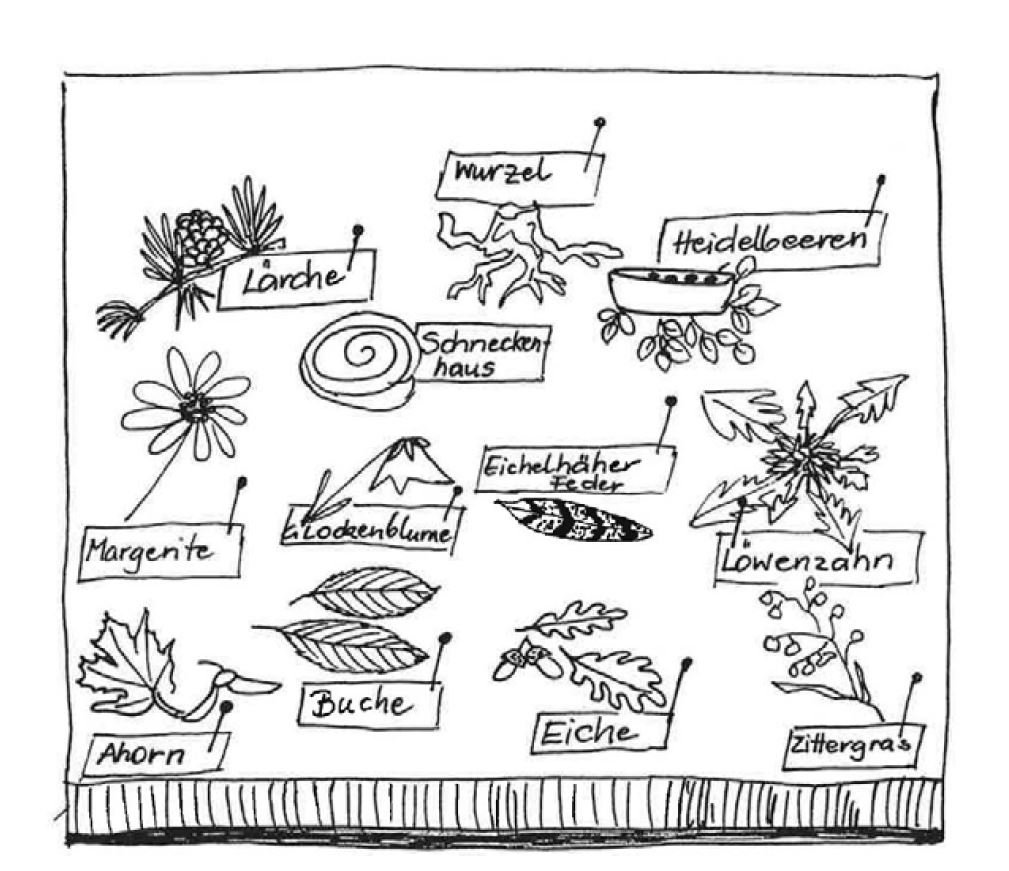 Wurzel
Heidelbeeren
Lärche
Schnecken-
haus
Eichelhäher
Feder
Margerite
Glockenblume
Löwenzahn
Buche
Eiche
Ahorn
Zittergras